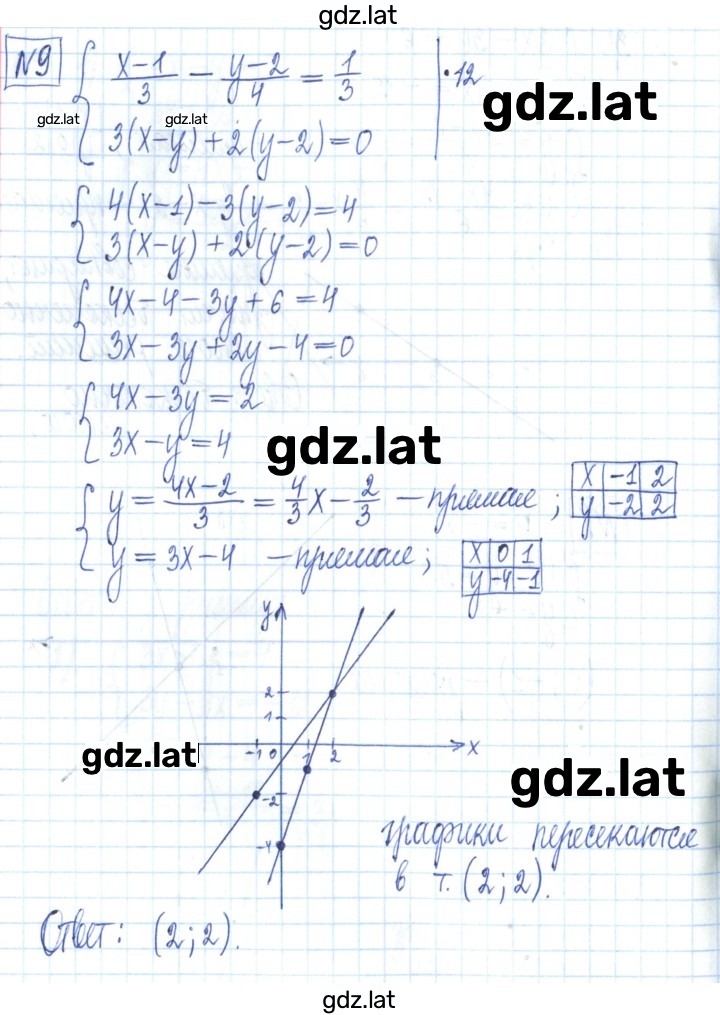 gdz.lat
№9
{ (x-1)/3 - (y-2)/4 = 1/3 | ·12
gdz.lat
gdz.lat gdz.lat
3(x-y)+2(y-2)=0
{ 4(x-1)-3(y-2)=4
3(x-y)+2(y-2)=0
{ 4x-4-3y+6=4
3x-3y+2y-4=0
{ 4x-3y=2
3x-y=4
gdz.lat
{ y = (4x-2)/3 = 4/3 x - 2/3 - прямая ; x -1 2
y -2 2
y = 3x-4 - прямая ; x 0 1
y -4 -1
y
2
1
-1 0 1 2 x
gdz.lat
gdz.lat
-2
-4
графики пересекаются
в т. (2;2).
Ответ: (2;2).
gdz.lat